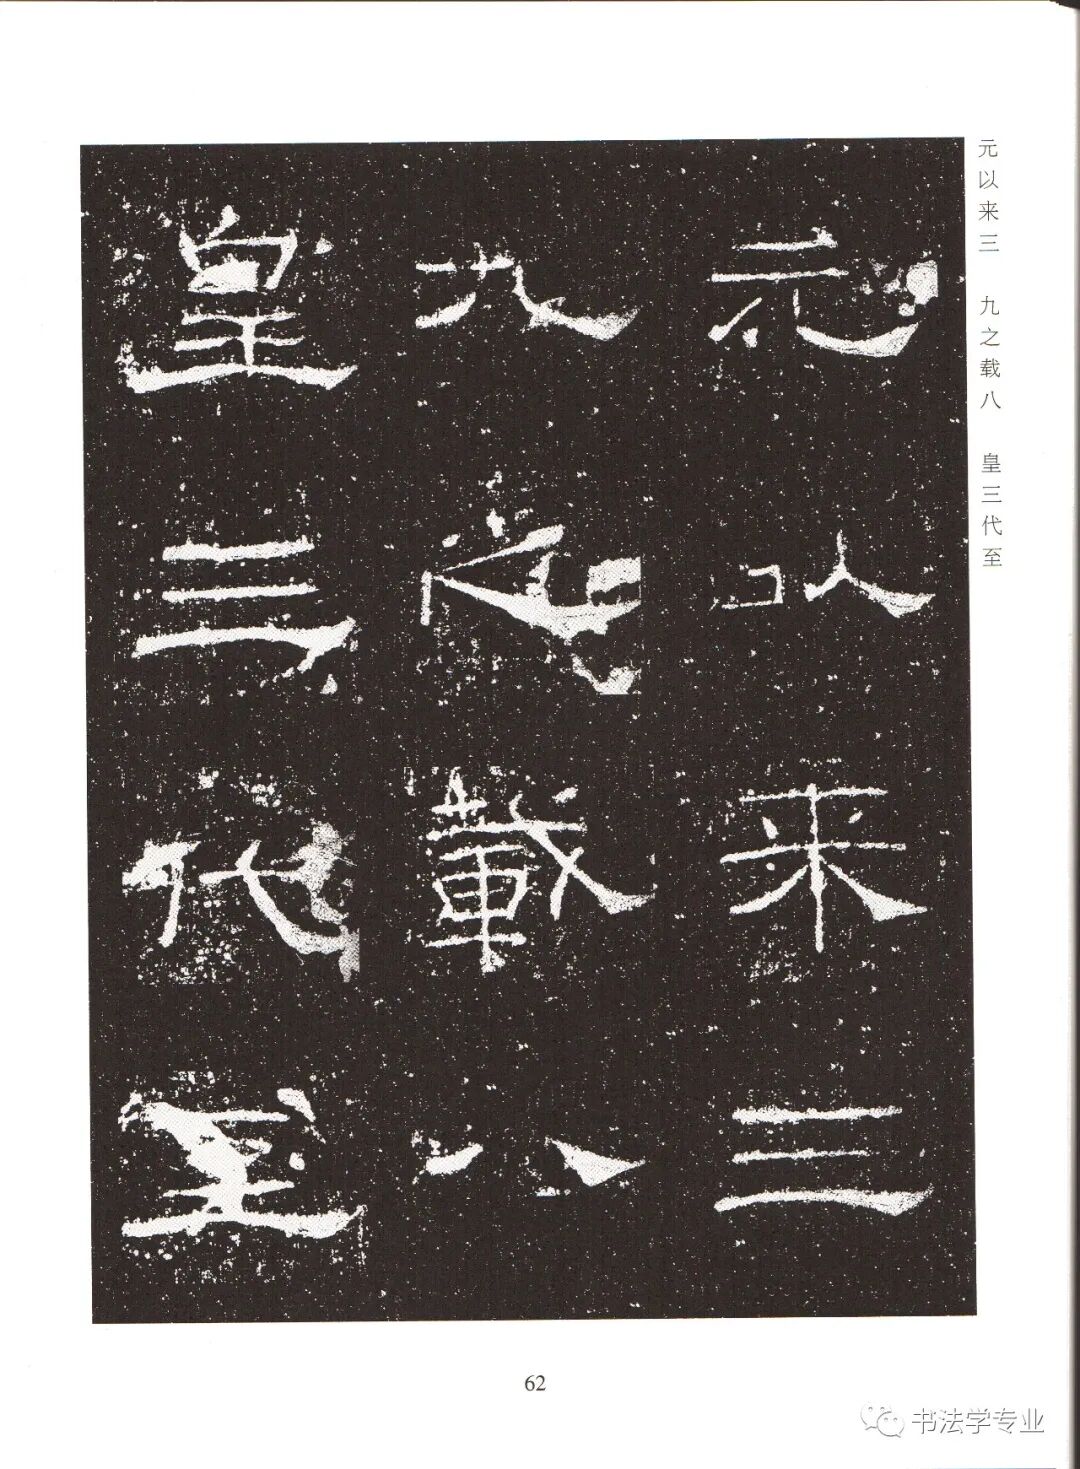 元以来三 九之载八 皇三代至
元以来三
九之載八
皇三代至
62
书法学专业